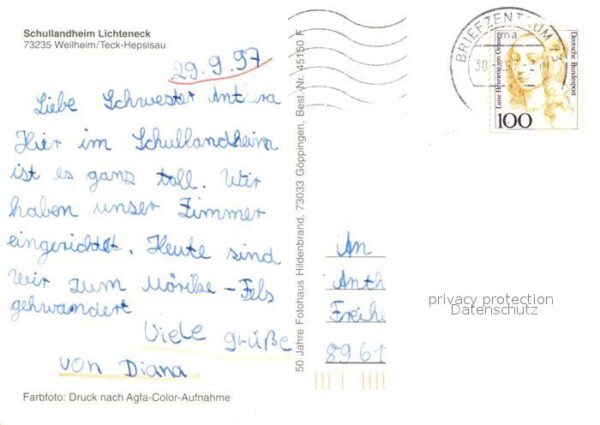 Schullandheim Lichteneck
73235 Weilheim/Teck-Hepsisau
29.9.97
Liebe Schwester
Hier im Schullandheim
ist es ganz toll. Wir
haben unser Zimmer
eingerichtet. Heute sind
wir zum Mörike-Fels
gehwandert
Viele grüße
von Diana
Farbfoto: Druck nach Agfa-Color-Aufnahme
50 Jahre Fotohaus Hildenbrand, 73033 Göppingen, Best.-Nr. 45150 F
BRIEFZENTRUM 73
ma
Deutsche Bundespost
Luise Henriette von Oranien
100
An
Anth
Freihe
8961
privacy protection
Datenschutz